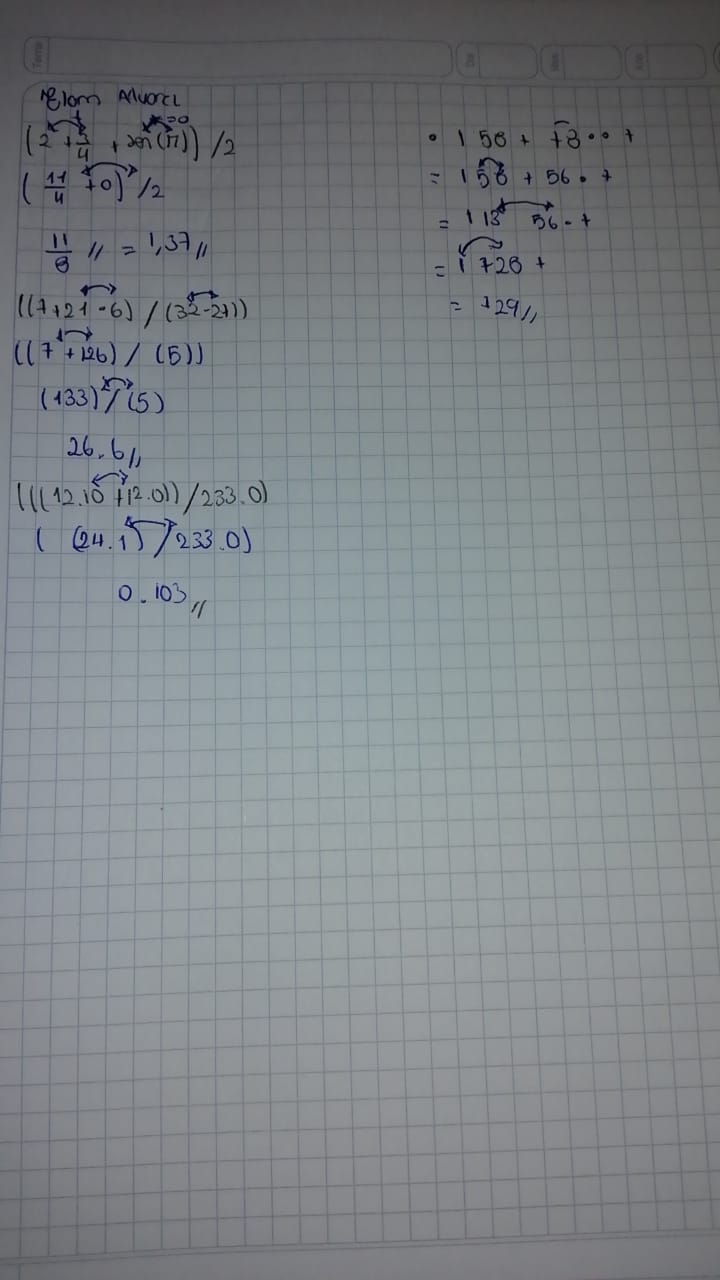 Tema
=0
(2 + 3/4 + sen(π)) / 2
(11/4 + 0) / 2
11/8 // = 1,37 //
((7+21·6) / (32-27))
((7 + 126) / (5))
(133) / (5)
26.6 //
(((12.10 + 12.0)) / 233.0)
( (24.1) / 233.0)
0.103 //
• 1 58 + 78 • • +
= 1 58 + 56 • +
= 1 13 56 • +
= 1 728 +
= 729 //